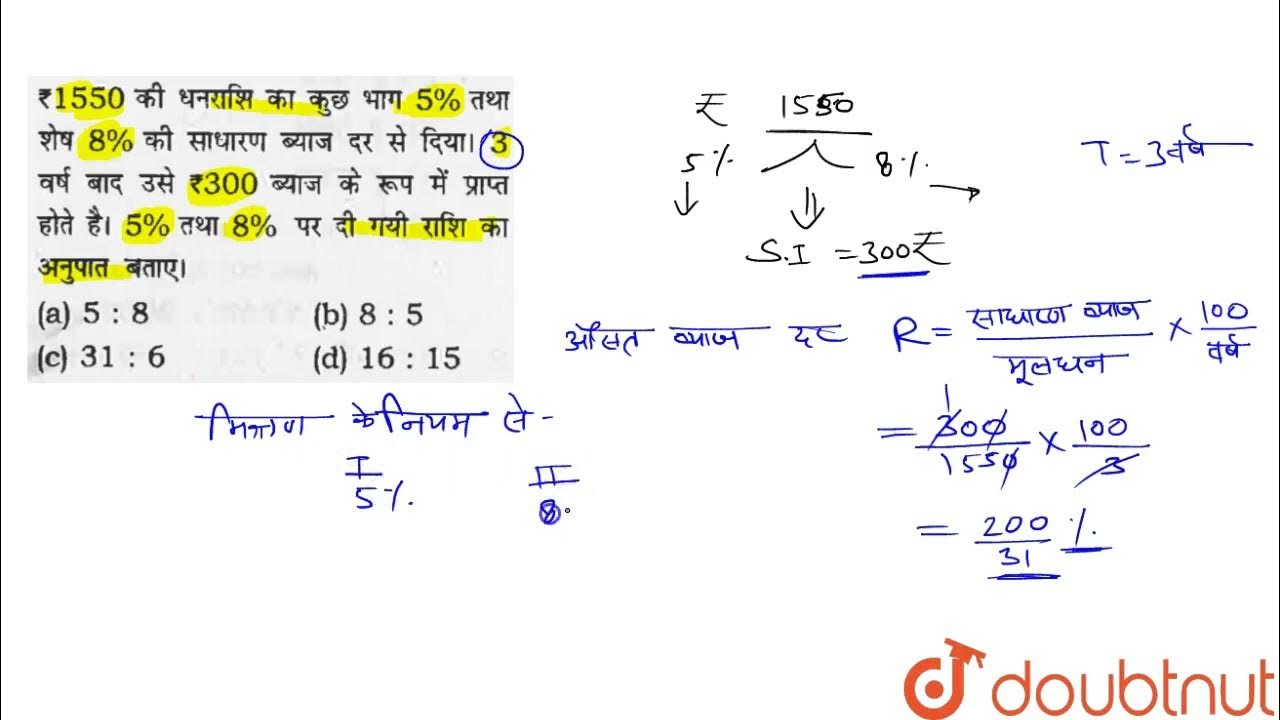 ₹1550 की धनराशि का कुछ भाग 5% तथा
शेष 8% की साधारण ब्याज दर से दिया। 3
वर्ष बाद उसे ₹300 ब्याज के रूप में प्राप्त
होते है। 5% तथा 8% पर दी गयी राशि का
अनुपात बताए।
(a) 5 : 8 (b) 8 : 5
(c) 31 : 6 (d) 16 : 15
₹ 1550
5% 8%
T = 3 वर्ष
S.I = 300₹
औसत ब्याज दर R = साधारण ब्याज / मूलधन × 100 / वर्ष
= 300 / 1550 × 100 / 3
= 200 / 31 %
मिश्रण के नियम से -
I II
5% 8.
doubtnut